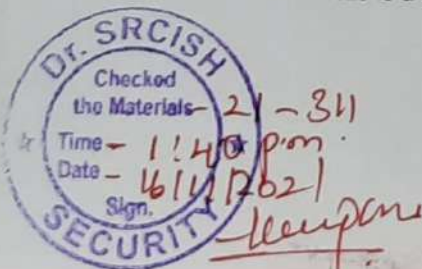 Dr. SRCISH
Checked
the Materials - 21-311
Time - 1:40 p.m.
Date - 16/11/2021
Sign.
SECURITY